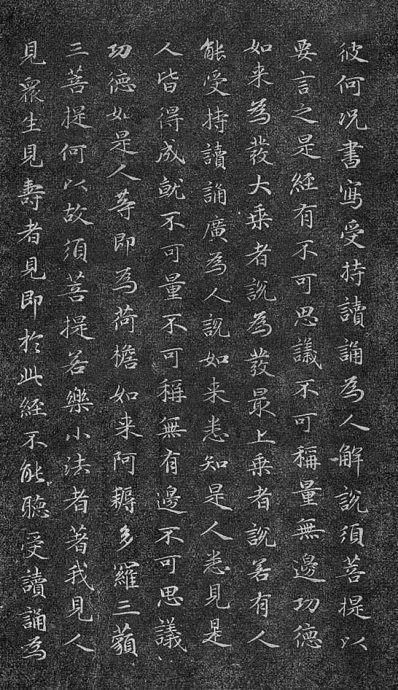 彼何况書寫受持讀誦為人解說須菩提以
要言之是經有不可思議不可稱量無邊功德
如来為發大乗者說為發最上乗者說若有人
能受持讀誦廣為人說如来悉知是人悉見是
人皆得成就不可量不可稱無有邊不可思議
功德如是人等即為荷擔如来阿耨多羅三藐
三菩提何以故須菩提若樂小法者著我見人
見衆生見壽者見即於此經不能聽受讀誦為